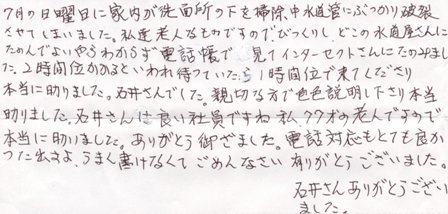 7月の日曜日に家内が洗面所の下を掃除中水道管にぶつかり破裂
させてしまいました。私達老人なものですのでびっくりしどこの水道屋さんに
たのんでよいやらわからず電話帳で 見てインターセクトさんにたのみまし
た。2時間位かかるといわれ待っていたら1時間位で来てくださり
本当に助りました。石井さんでした。親切な方で色色説明し下さり本当
助りました。石井さんは良い社員ですね 私、77才の老人ですので
本当に助りました。ありがとう御ざました。電話対応もとても良か
つた出すよ、うまく書けなくてごめんなさい 有りがとうございました。
石井さんありがとうござい
ました